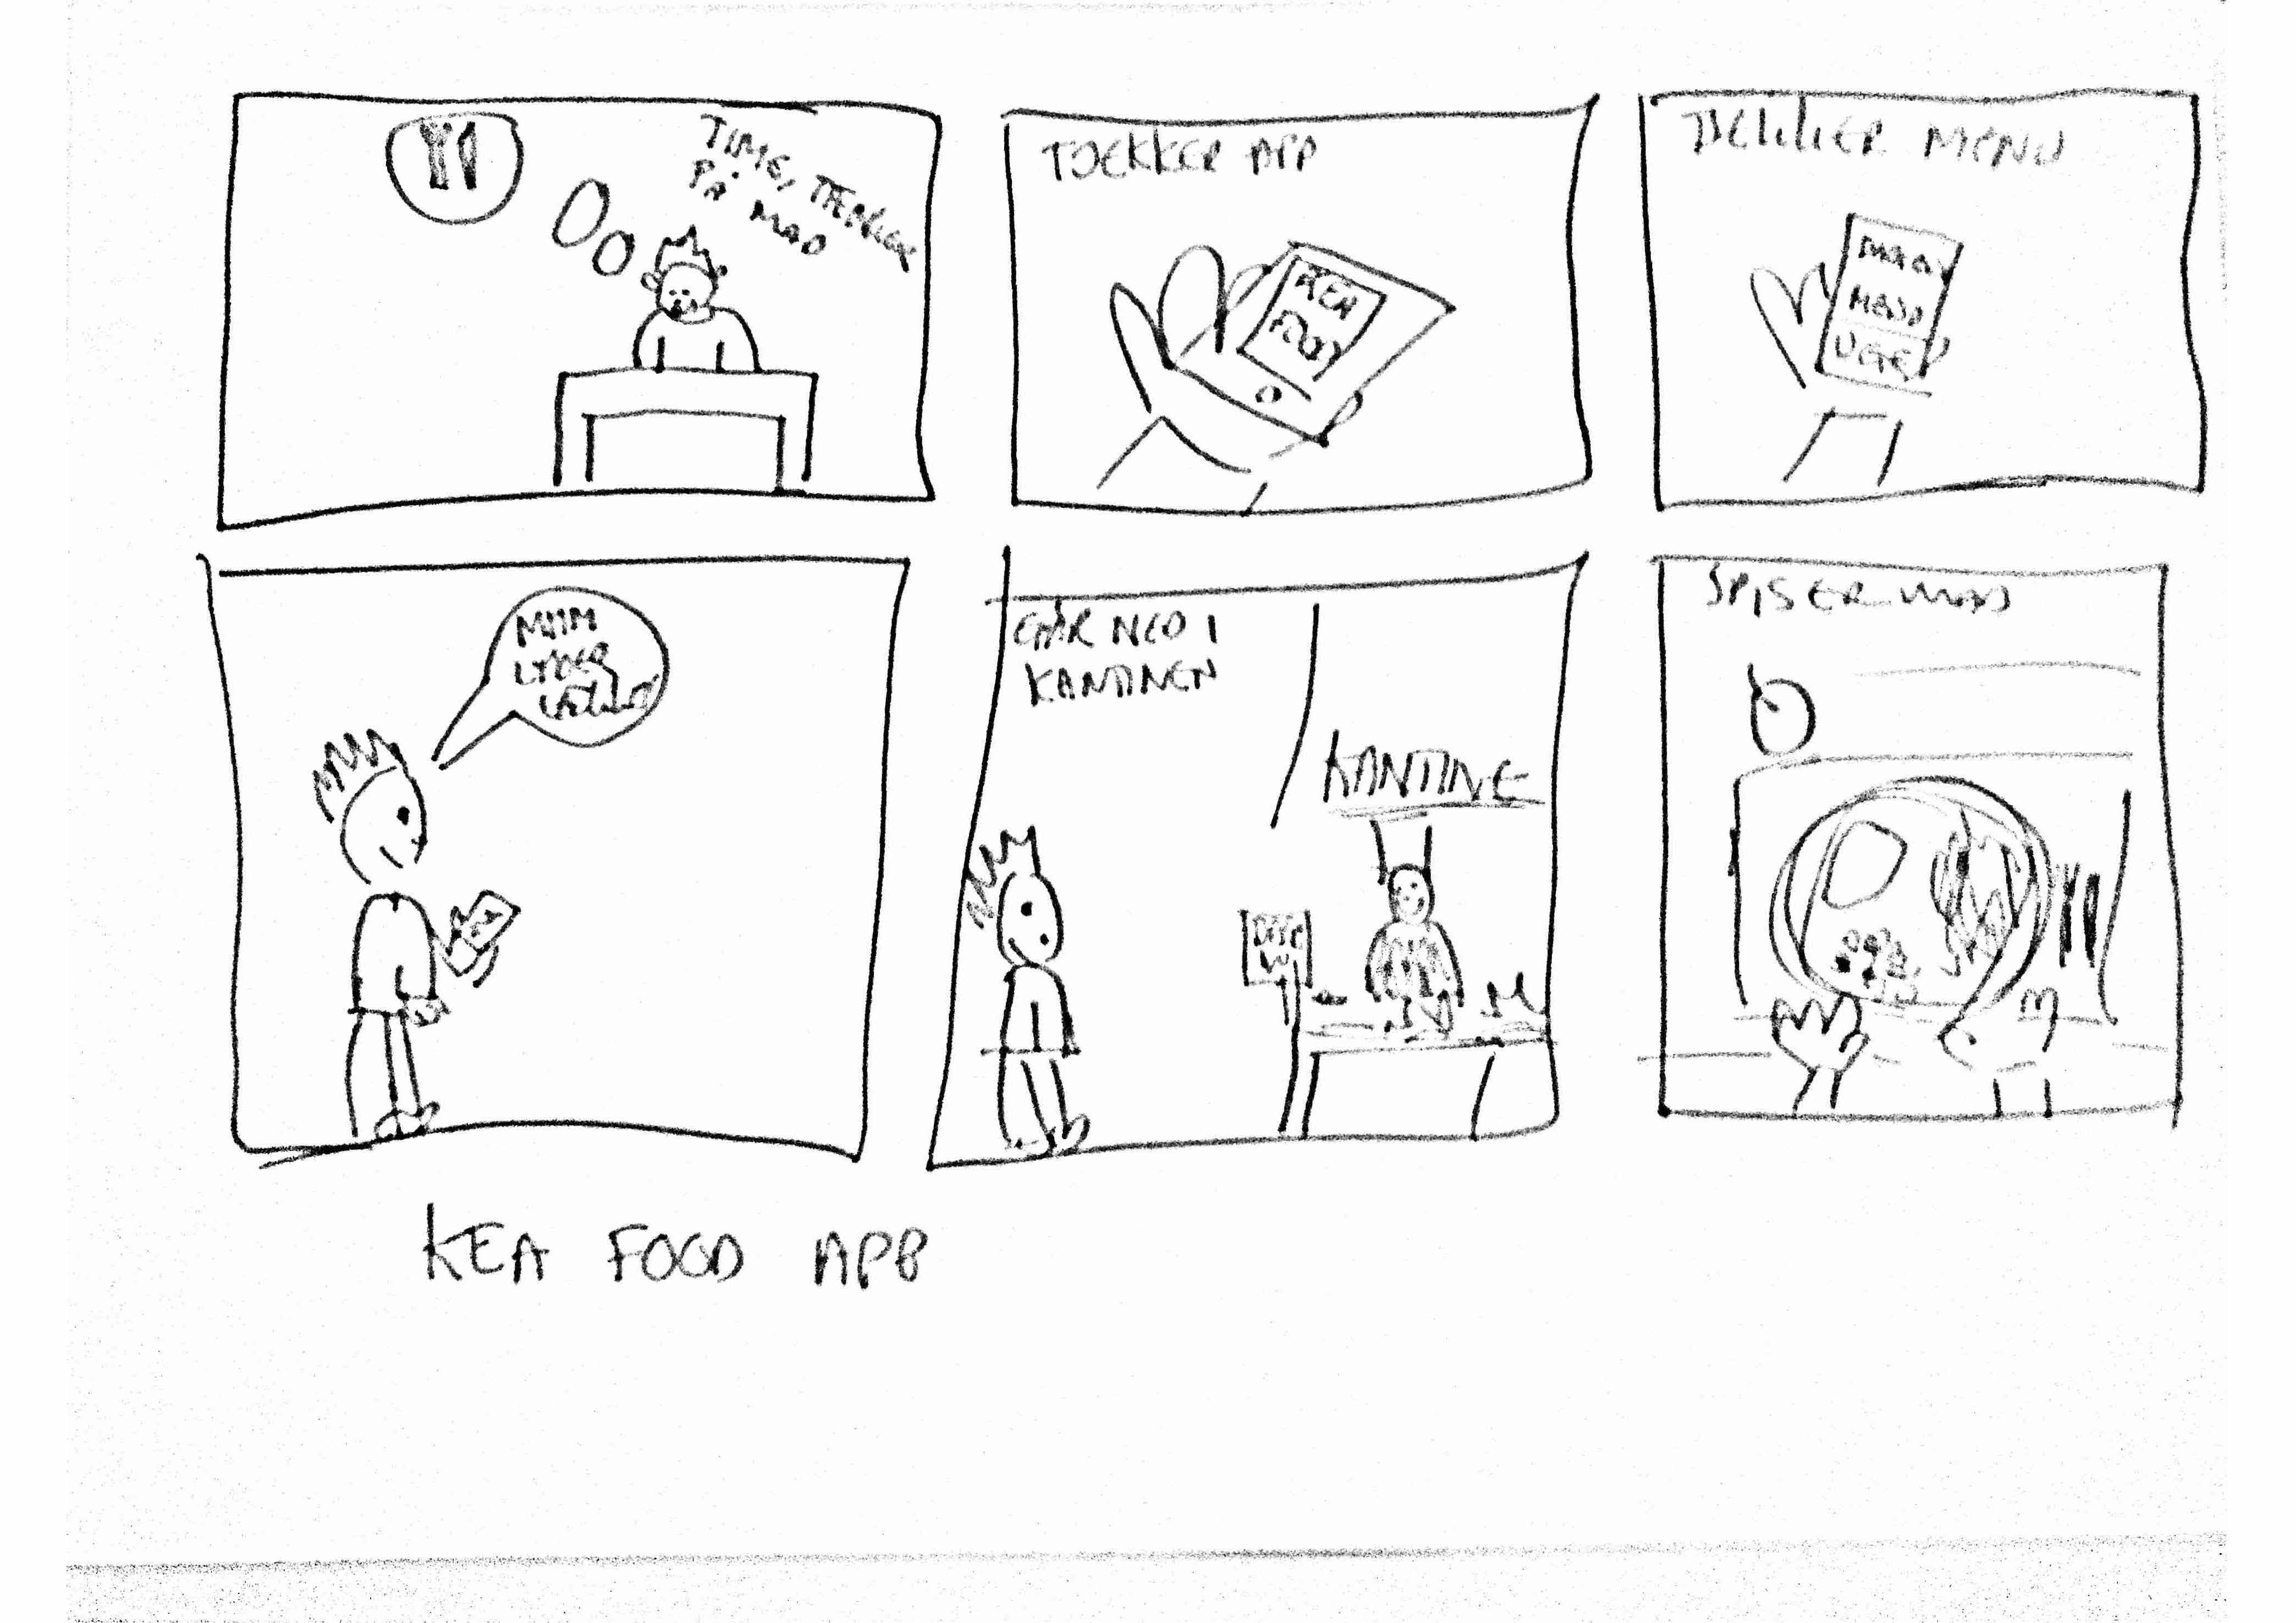 TIME, TÆNKER
PÅ MAD
TJEKKER APP
KEA
FOOD
TJEKKER MENU
MENU
UGE
MMM
LYDER
LÆKKERT
GÅR NED I
KANTINEN
KANTINE
SPISER MAD
KEA FOOD APP